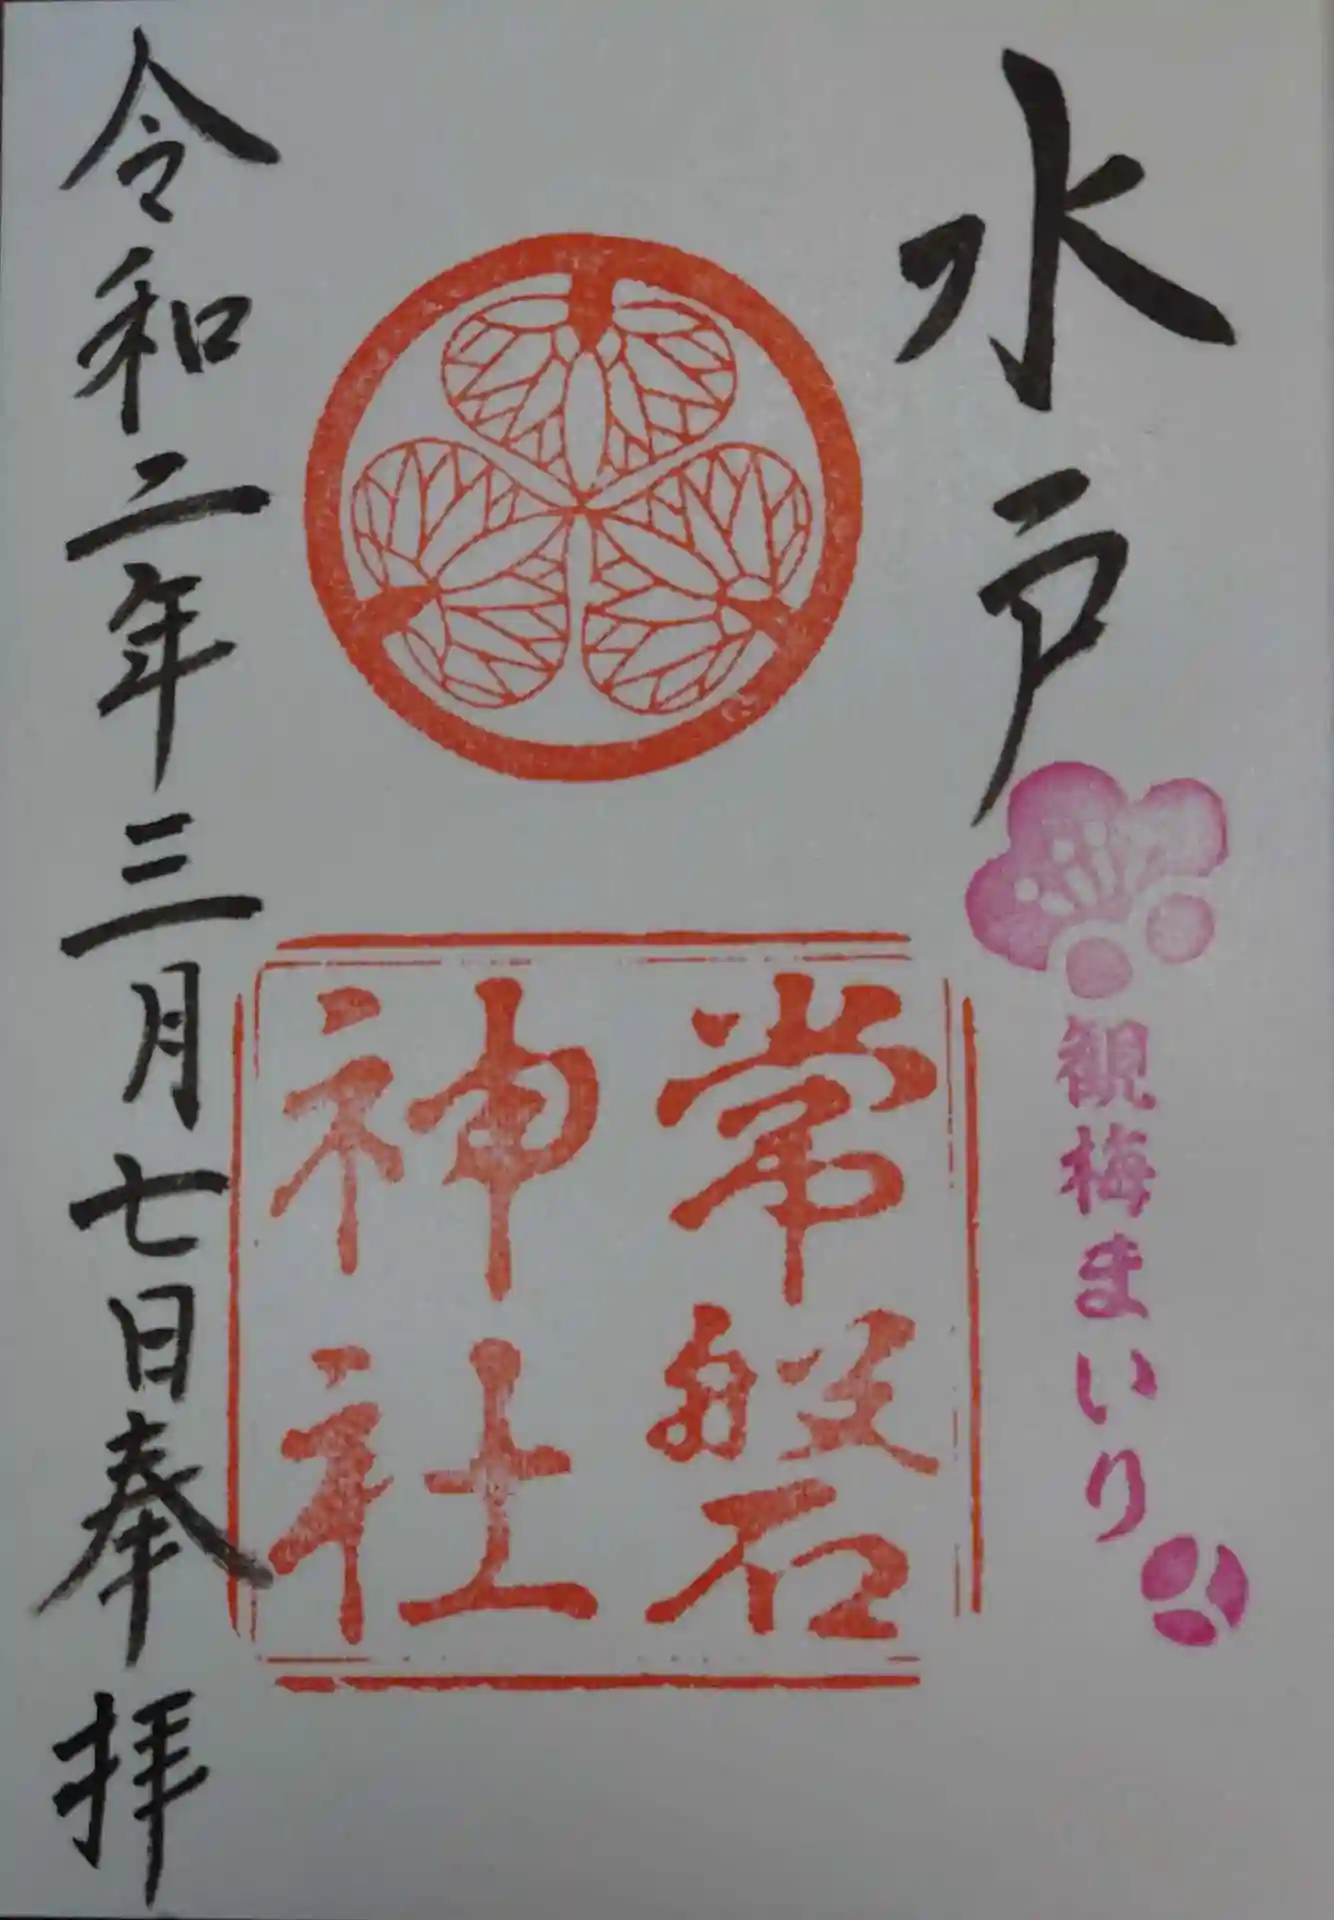 水戸
観梅まいり
常磐
神社
令和二年三月七日奉拝